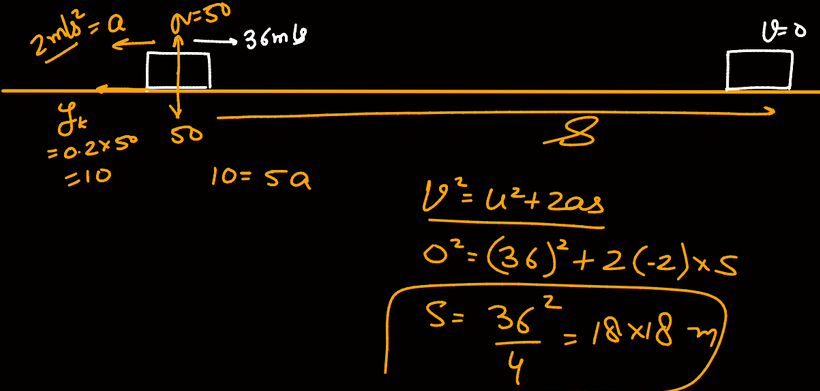 2m/s² = a
N=50
36m/s
v=0
50
fₖ
=0.2×50
=10
S
10= 5a
v²= u²+2as
0²=(36)²+2(-2)×S
S= 36²/4 = 18×18 m